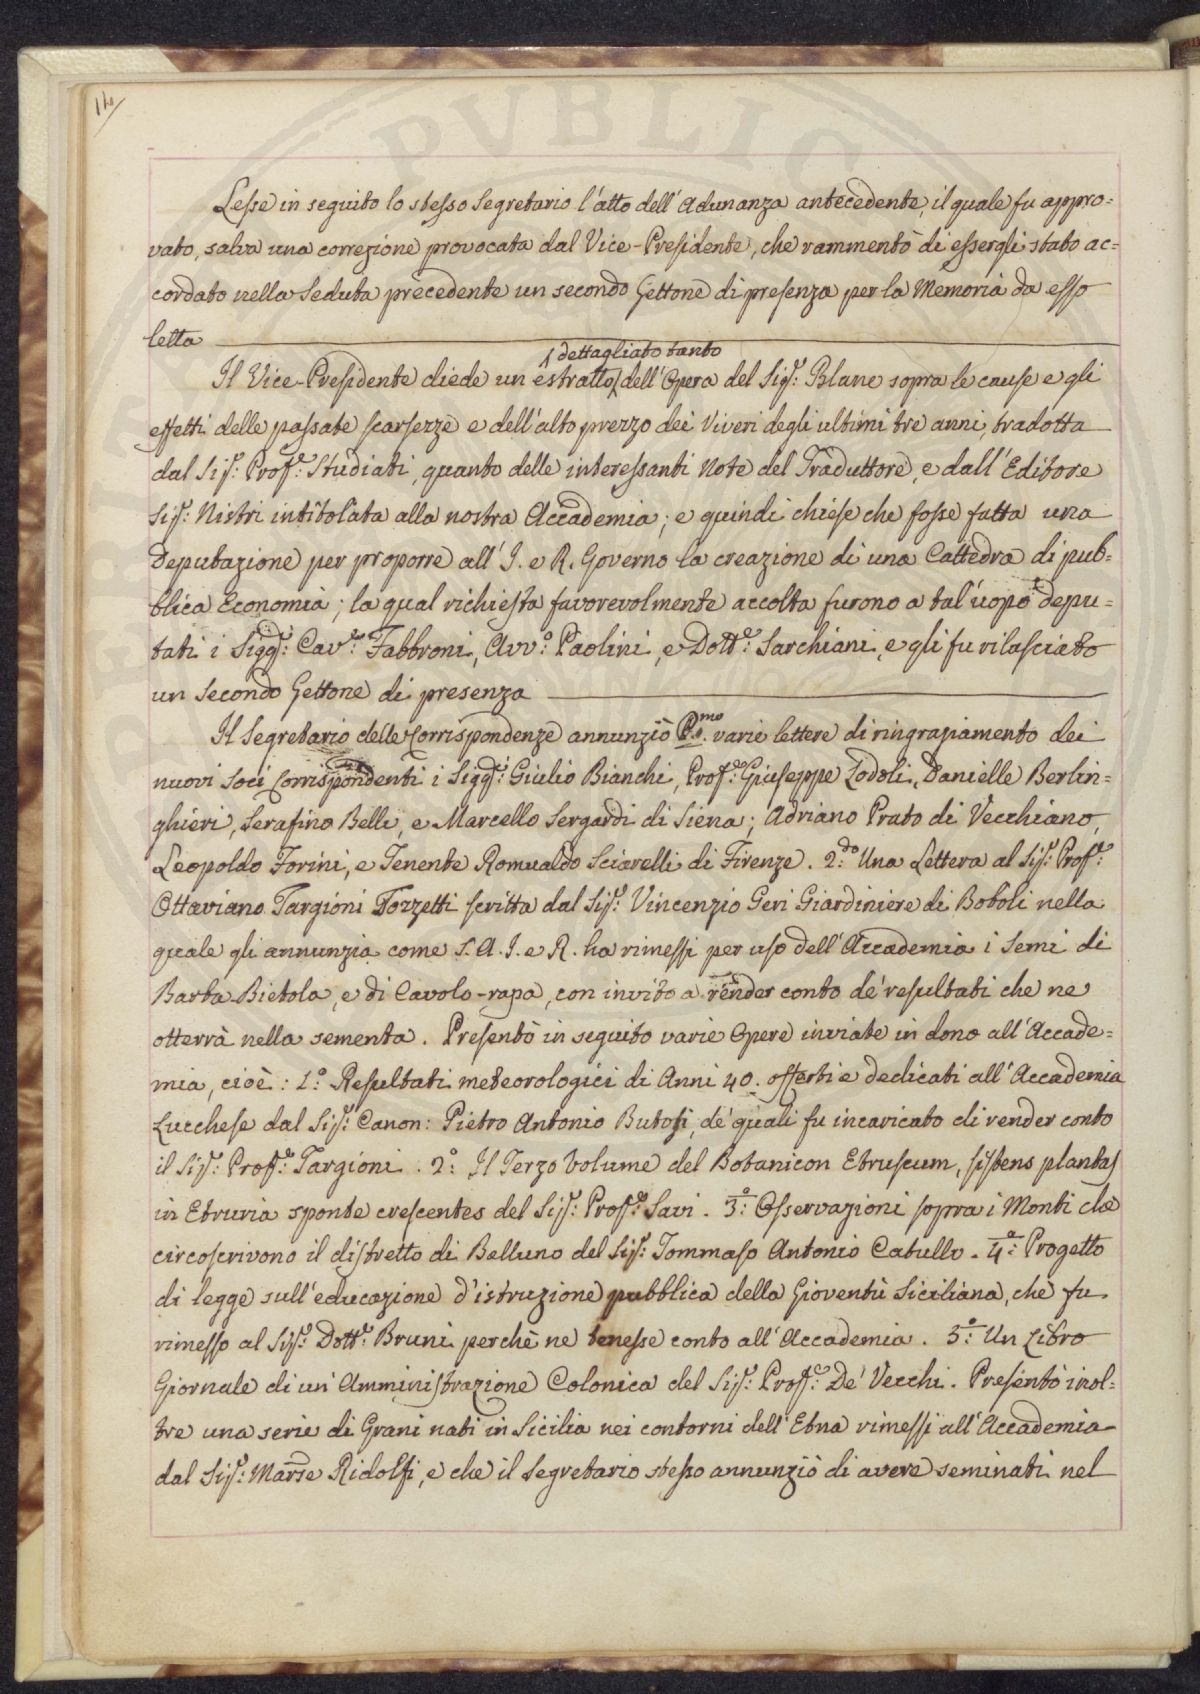 14
PVBLIC
Lesse in seguito lo stesso Segretario l'atto dell'Adunanza antecedente, il quale fu appro=
vato, salva una correzione provocata dal Vice-Presidente, che rammentò di essergli stato ac=
cordato nella Seduta precedente un secondo Gettone di presenza per la Memoria da esso
letta
dettagliato tanto
Il Vice-Presidente diede un estratto dell'Opera del Sig.r Blane sopra le cause e gli
effetti delle passate scarsezze e dell'alto prezzo dei Viveri degli ultimi tre anni, tradotta
dal Sig.r Prof.e Studiati, quanto delle interessanti Note del Traduttore, e dall'Editore
Sig.r Nistri intitolata alla nostra Accademia; e quindi chiese che fosse fatta una
Deputazione per proporre all'I. e R. Governo la creazione di una Cattedra di pub=
blica Economia; la qual richiesta favorevolmente accolta furono a tal'uopo depu=
tati i Sigg.ri Cav.re Fabbroni, Avv.o Paolini, e Dott.e Sarchiani, e gli fu rilasciato
un secondo Gettone di presenza
Il Segretario delle Corrispondenze annunziò P.mo varie lettere di ringraziamento dei
nuovi Soci Corrispondenti i Sigg.ri Giulio Bianchi, Prof.e Giuseppe Lodoli, Danielle Berlin=
ghieri, Serafino Belli, e Marcello Sergardi di Siena; Adriano Prato di Vecchiano,
Leopoldo Forini, e Tenente Romualdo Sciarelli di Firenze. 2.do Una Lettera al Sig.r Prof.e
Ottaviano Targioni Tozzetti scritta dal Sig.r Vincenzio Geri Giardiniere di Boboli nella
quale gli annunzia come S. A. I. e R. ha rimessi per uso dell'Accademia i Semi di
Barba Bietola, e di Cavolo-rapa, con invito a render conto de' resultati che ne
otterrà nella sementa. Presentò in seguito varie Opere inviate in dono all'Accade=
mia, cioè: 1.o Resultati meteorologici di Anni 40. offerti e dedicati all'Accademia
Lucchese dal Sig.r Canon: Pietro Antonio Butori, de' quali fu incaricato di render conto
il Sig.r Prof.e Targioni. 2.o Il Terzo Volume del Botanicon Etruscum, sistens plantas
in Etruria sponte crescentes del Sig.r Prof.e Savi. 3.o Osservazioni sopra i Monti che
circoscrivono il distretto di Belluno del Sig.r Tommaso Antonio Catullo. 4.o Progetto
di legge sull'educazione d'istruzione pubblica della Gioventù Siciliana, che fu
rimesso al Sig.r Dott.e Bruni perchè ne tenesse conto all'Accademia. 5.o Un Libro
Giornale di un'Amministrazione Colonica del Sig.r Prof.e De' Vecchi. Presentò inol=
tre una serie di Grani nati in Sicilia nei contorni dell'Etna rimessi all'Accademia
dal Sig.r Marse Ridolfi, e che il Segretario stesso annunziò di avere seminati nel